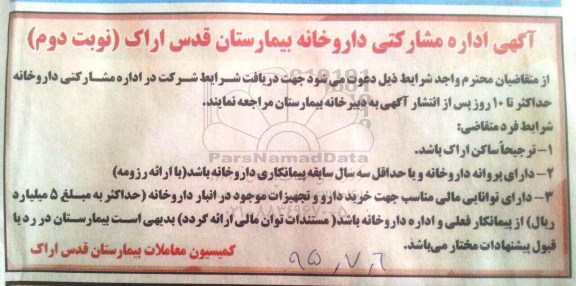 آگهی اداره مشارکتی داروخانه بیمارستان قدس اراک (نوبت دوم)
از متقاضیان محترم واجد شرایط ذیل دعوت می شود جهت دریافت شرایط شرکت در اداره مشارکتی داروخانه
حداکثر تا ۱۰ روز پس از انتشار آگهی به دبیرخانه بیمارستان مراجعه نمایند.
شرایط فرد متقاضی:
۱- ترجیحاً ساکن اراک باشد.
ParsNamadData
۲- دارای پروانه داروخانه و یا حداقل سه سال سابقه پیمانکاری داروخانه باشد(با ارائه رزومه)
۳- دارای توانایی مالی مناسب جهت خرید دارو و تجهیزات موجود در انبار داروخانه (حداکثر به مبلغ ۵ میلیارد
ریال) از پیمانکار فعلی و اداره داروخانه باشد( مستندات توان مالی ارائه گردد) بدیهی است بیمارستان در رد یا
قبول پیشنهادات مختار می‌باشد.
کمیسیون معاملات بیمارستان قدس اراک
۹۵,۷,۶